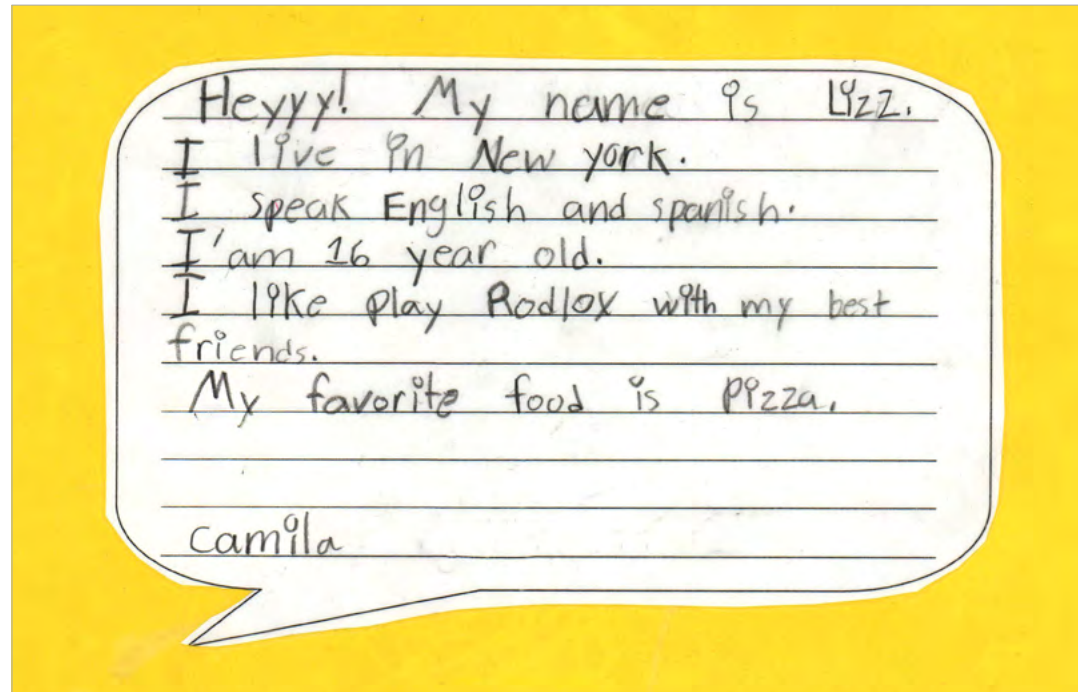 Heyyy! My name is Lizz.
I live in New york.
I speak English and spanish.
I'am 16 year old.
I like play Rodlox with my best
friends.
My favorite food is Pizza.
camila